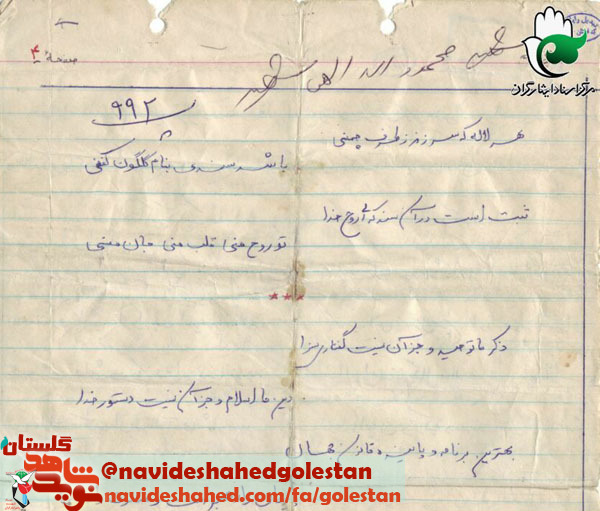 صفحه ۴
شهید محمود اله الهی
۹۹۲
هر لاله که سر زند ز طرف چمنی
باشد سندی بنام گلگون کفنی
ثبت است در آن سند که ای روح خدا
تو روح منی قلب منی جان منی
***
ذکر ما توحید و جز آن نیست گفتاری سزا
دین ما اسلام و جز آن نیست دستور خدا
بهترین برنامه و پاینده قانون
مرکز اسناد ایثارگران
نوید شاهد گلستان
@navideshahedgolestan
navideshahed.com/fa/golestan